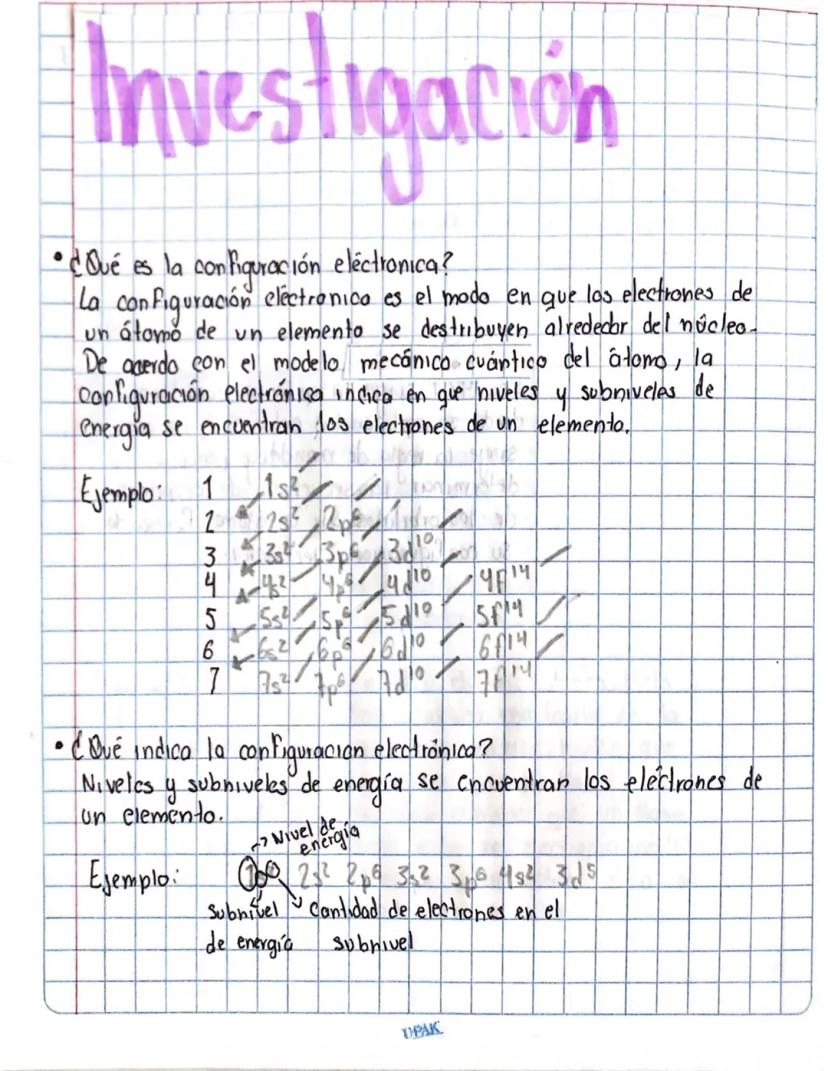 Investigación
• ¿Qué es la configuración eléctronica?
La configuración eléctronico es el modo en que los electrones de
un átomo de un elemento se destribuyen alrededor del núcleo.
De acerdo con el modelo mecánico cuántico del átomo, la
configuración electrónica indica en que niveles y subniveles de
energía se encuentran los electrones de un elemento.
Ejemplo: 1 1s²
2 2s² 2p⁶
3 3s² 3p⁶ 3d¹⁰
4 4s² 4p⁶ 4d¹⁰ 4f¹⁴
5 5s² 5p⁶ 5d¹⁰ 5f¹⁴
6 6s² 6p⁶ 6d¹⁰ 6f¹⁴
7 7s² 7p⁶ 7d¹⁰ 7f¹⁴
• ¿Qué indica la configuración electrónica?
Niveles y subniveles de energía se encuentran los eléctrones de
un elemento.
→ Nivel de
energía
Ejemplo: 2s² 2p⁶ 3s² 3p⁶ 4s² 3d⁵
Subnivel Cantidad de electrones en el
de energía subnivel
UPAK